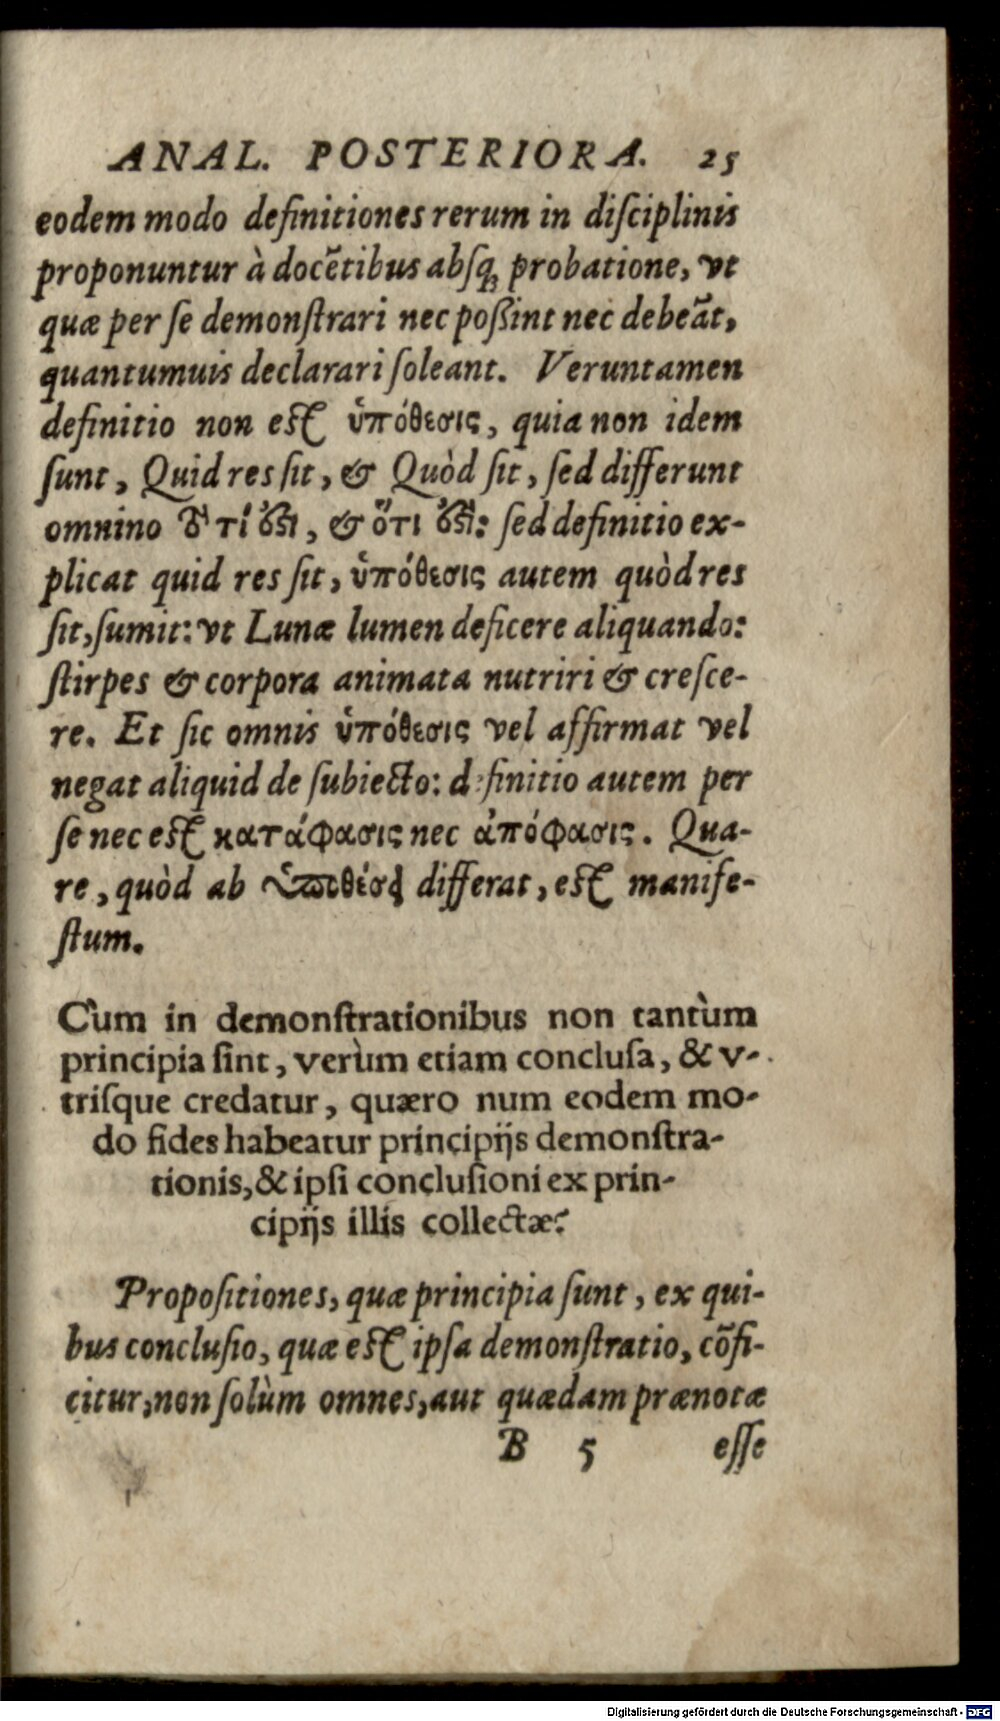 ANAL. POSTERIORA. 25
eodem modo definitiones rerum in diſciplinis
proponuntur à docẽtibus abſq; probatione, vt
quæ per ſe demonſtrari nec poßint nec debeãt,
quantumuis declarari ſoleant. Veruntamen
definitio non est ὑπόθεσις, quia non idem
ſunt, Quid res ſit, & Quòd ſit, ſed differunt
omnino τὸ τί ἐστι, & ὅτι ἐστι: ſed definitio ex-
plicat quid res ſit, ὑπόθεσις autem quòd res
ſit, ſumit: vt Lunæ lumen deficere aliquando:
ſtirpes & corpora animata nutriri & creſce-
re. Et ſic omnis ὑπόθεσις vel affirmat vel
negat aliquid de ſubiecto: definitio autem per
ſe nec est κατάφασις nec ἀπόφασις. Qua-
re, quòd ab ὑποθέσει differat, est manife-
ſtum.
Cùm in demonſtrationibus non tantùm
principia ſint, verùm etiam concluſa, & v-
triſque credatur, quæro num eodem mo-
do fides habeatur principijs demonſtra-
tionis, & ipſi concluſioni ex prin-
cipijs illis collectæ?
Propoſitiones, quæ principia ſunt, ex qui-
bus concluſio, quæ est ipſa demonſtratio, cõfi-
citur, non ſolùm omnes, aut quædam prænotæ
B 5 eſſe
Digitalisierung gefördert durch die Deutsche Forschungsgemeinschaft - DFG